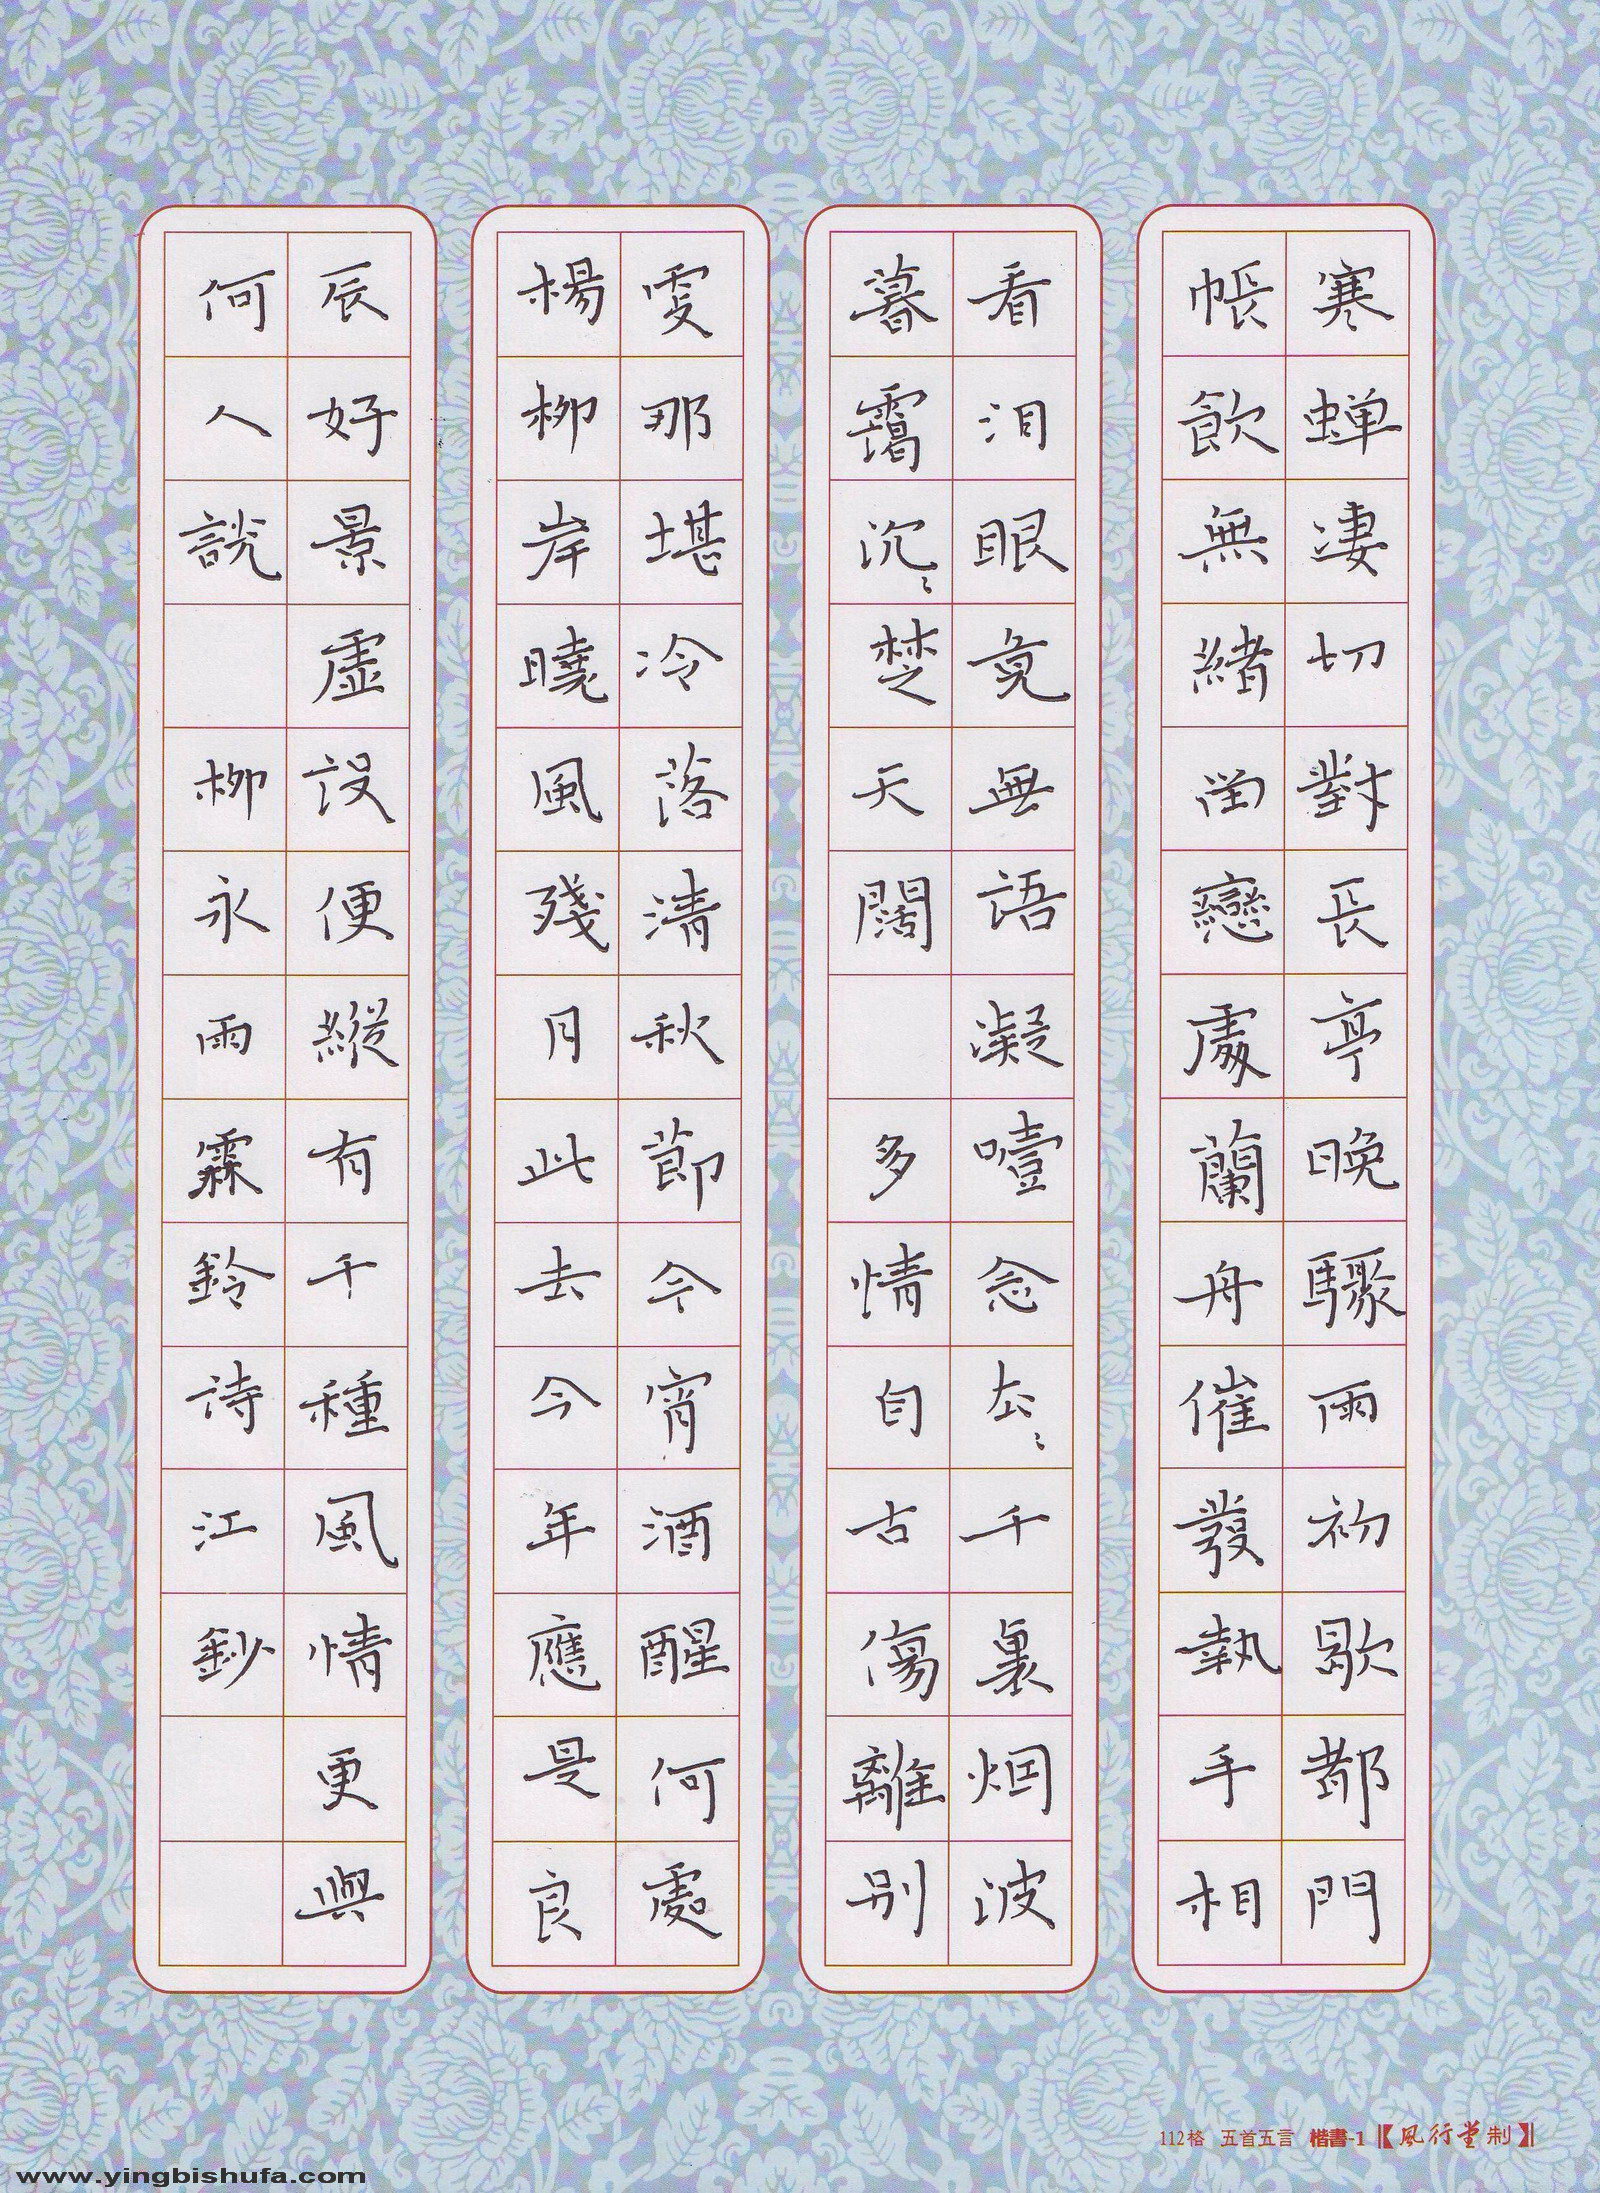 寒蝉凄切對長亭晚驟雨初歇都門
帳飲無緒留戀處蘭舟催發執手相
看泪眼竟無語凝噎念去〻千裏烟波
暮靄沉〻楚天闊 多情自古傷離别
更那堪冷落清秋節今宵酒醒何處
楊柳岸曉風殘月此去今年應是良
辰好景虛設便縱有千種風情更與
何人說 柳永雨霖鈴詩江鈔
112格 五首五言 楷書-1【風行堂制】
www.yingbishufa.com